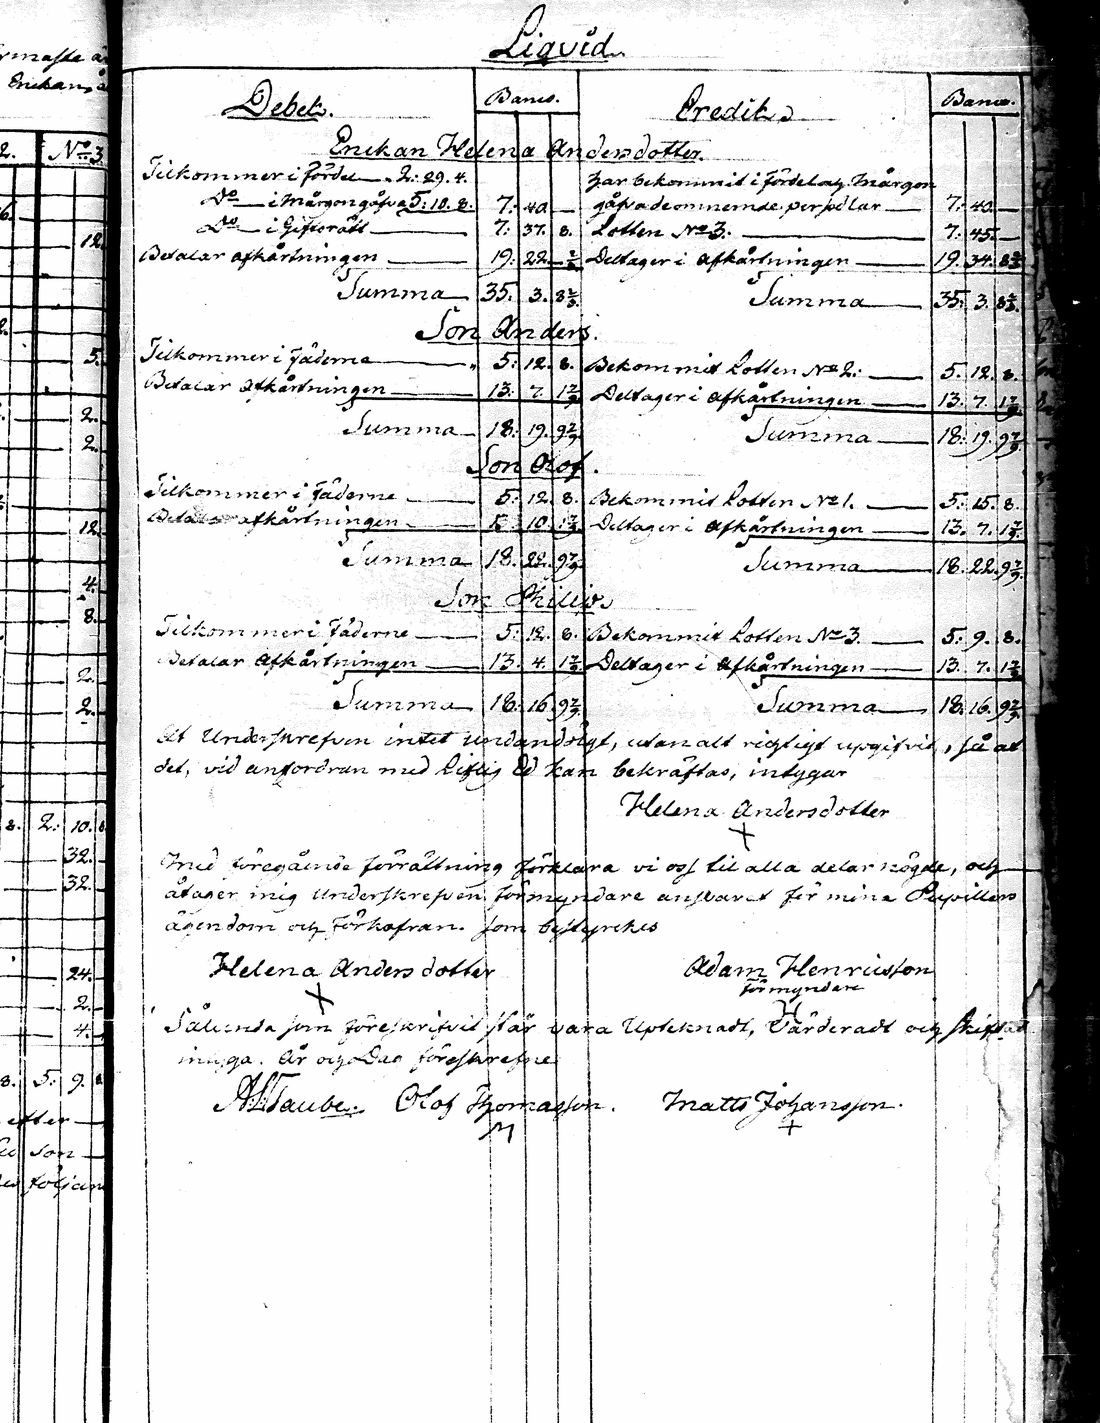 Liqvid.
Debet. Banco. Credit. Banco.
Enckan Helena Andersdotter.
Tilkommer i Fördel 2: 29. 4. har bekommit i Fördel och Mårgon
Do i Mårgongåfva 5: 10. 8. 7: 40. — gåfva de omnemde perpelar 7: 40. —
Do i Giftorätt 7: 37. 8. Lotten No 3. 7: 45. —
Betalar afkårtningen 19: 22. 2/3 Deltager i afkårtningen 19. 34. 8 2/3
Summa 35. 3. 8 2/3. Summa 35. 3. 8 2/3.
Son Anders.
Tilkommer i Fäderne 5: 12. 8. Bekommit Lotten No 2. 5. 12. 8.
Betalar afkårtningen 13. 7. 1 7/9 Deltager i afkårtningen 13. 7. 1 7/9
Summa 18. 19. 9 7/9 Summa 18. 19. 9 7/9
Son Olof.
Tilkommer i Fäderne 5. 12. 8. Bekommit Lotten No 1. 5. 15. 8.
Betalar afkårtningen 10. 1 7/9 Deltager i afkårtningen 13. 7. 1 7/9
Summa 18. 22. 9 7/9 Summa 18. 22. 9 7/9
Son Philip.
Tilkommer i Fäderne 5. 12. 8. Bekommit Lotten No 3. 5. 9. 8.
Betalar afkårtningen 13. 4. 1 7/9 Deltager i afkårtningen 13. 7. 1 7/9
Summa 18. 16 9 7/9 Summa 18. 16. 9 7/9
At Underskrefven intet undandölgt, utan alt rigtigt upgifvit, så at
det, vid anfordran med Liflig Ed kan bekräftas, intygar
Helena Andersdotter
Med föregående förrättning förklara vi oss til alla delar nögde, och
åtager mig Underskrefven förmyndare ansvaret för mina Pupillers
ägendom och förkofran. som bestyrckes
Helena Andersdotter Adam Henricsson
förmyndare
Sålunda som föreskrifvit står vara Upteknadt, Värderadt och skiftat
intyga. År och Dag föreskrefne
Taube. Olof Thomasson. Matts Johansson.